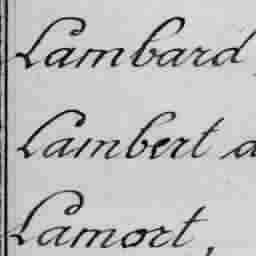 Lambard
Lambert a
Lamort,